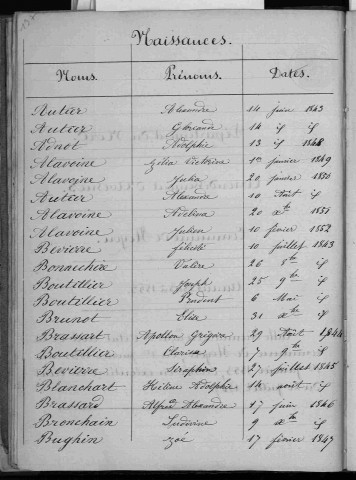 Naissances.
Noms. Prénoms. Dates.
Autier Alexandre 14 juin 1843
Autier 14 id id
Adnot Adolphe 13 id 1848
Alavoine Zélia Victorine 1er janvier 1849
Alavoine Julia 20 janvier 1850
Autier Alexandre 10 Août id
Alavoine 20 Xbre 1851
Alavoine Julien 10 février 1852
Bevierre félicité 10 juillet 1843
Bonnechère Valère 26 8bre id
Boutillier Joseph 25 9bre id
Boutillier Prudent 6 Mai id
Brunot Elise 31 Xbre id
Brassart Apollon Grégoire 29 Août 1844
Boutillier Clarisse Xbre id
Bevierre Séraphin 27 juillet 1845
Blanchart Hélène Adolphe 14 août id
Brassard Alfred Alexandre 17 juin 1846
Bronchain Ludivine 9 Xbre id
Bughin Zoé 17 février 1847